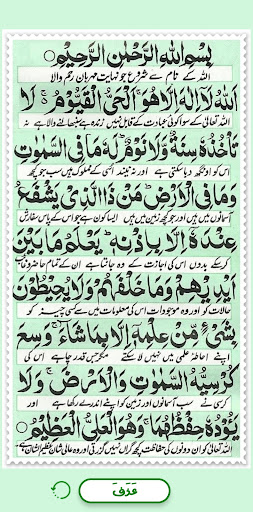 بِسْمِ اللهِ الرَّحْمٰنِ الرَّحِيْمِ ۝
اللہ کے نام سے شروع جو نہایت مہربان رحم والا
اَللهُ لَآ اِلٰهَ اِلَّا هُوَ ۚ اَلْحَيُّ الْقَيُّوْمُ ۚ لَا
اللہ تعالیٰ کے سوا کوئی عبادت کے قابل نہیں زندہ ہے سنبھالنے والا ہے نہ
تَاْخُذُهٗ سِنَةٌ وَّلَا نَوْمٌ ؕ لَهٗ مَا فِي السَّمٰوٰتِ
اس کو اونگھ دبا سکتی ہے اور نہ نیند اسی کے مملوک ہیں سب جو کچھ
وَمَا فِي الْاَرْضِ ؕ مَنْ ذَا الَّذِيْ يَشْفَعُ
آسمانوں میں ہیں اور جو کچھ زمین میں ہیں ایسا کون ہے جو اس کے پاس سفارش
عِنْدَهٗٓ اِلَّا بِاِذْنِهٖ ؕ يَعْلَمُ مَا بَيْنَ
کر سکے بدوں اس کی اجازت کے وہ جانتا ہے ان کے تمام حاضر و غائب
اَيْدِيْهِمْ وَمَا خَلْفَهُمْ ۚ وَلَا يُحِيْطُوْنَ
حالات کو اور وہ موجودات اس کی معلومات میں سے کسی چیز کو
بِشَيْءٍ مِّنْ عِلْمِهٖٓ اِلَّا بِمَا شَآءَ ۚ وَسِعَ
اپنے احاطۂ علمی میں نہیں لا سکتے مگر جس قدر چاہے اس کی
كُرْسِيُّهُ السَّمٰوٰتِ وَالْاَرْضَ ۚ وَلَا
کرسی نے سب آسمانوں اور زمین کو اپنے اندر لے رکھا ہے اور
يَئُوْدُهٗ حِفْظُهُمَا ۚ وَهُوَ الْعَلِيُّ الْعَظِيْمُ ۝
اللہ تعالیٰ کو ان دونوں کی حفاظت کچھ گراں نہیں گزرتی اور وہ عالی شان عظیم الشان ہے